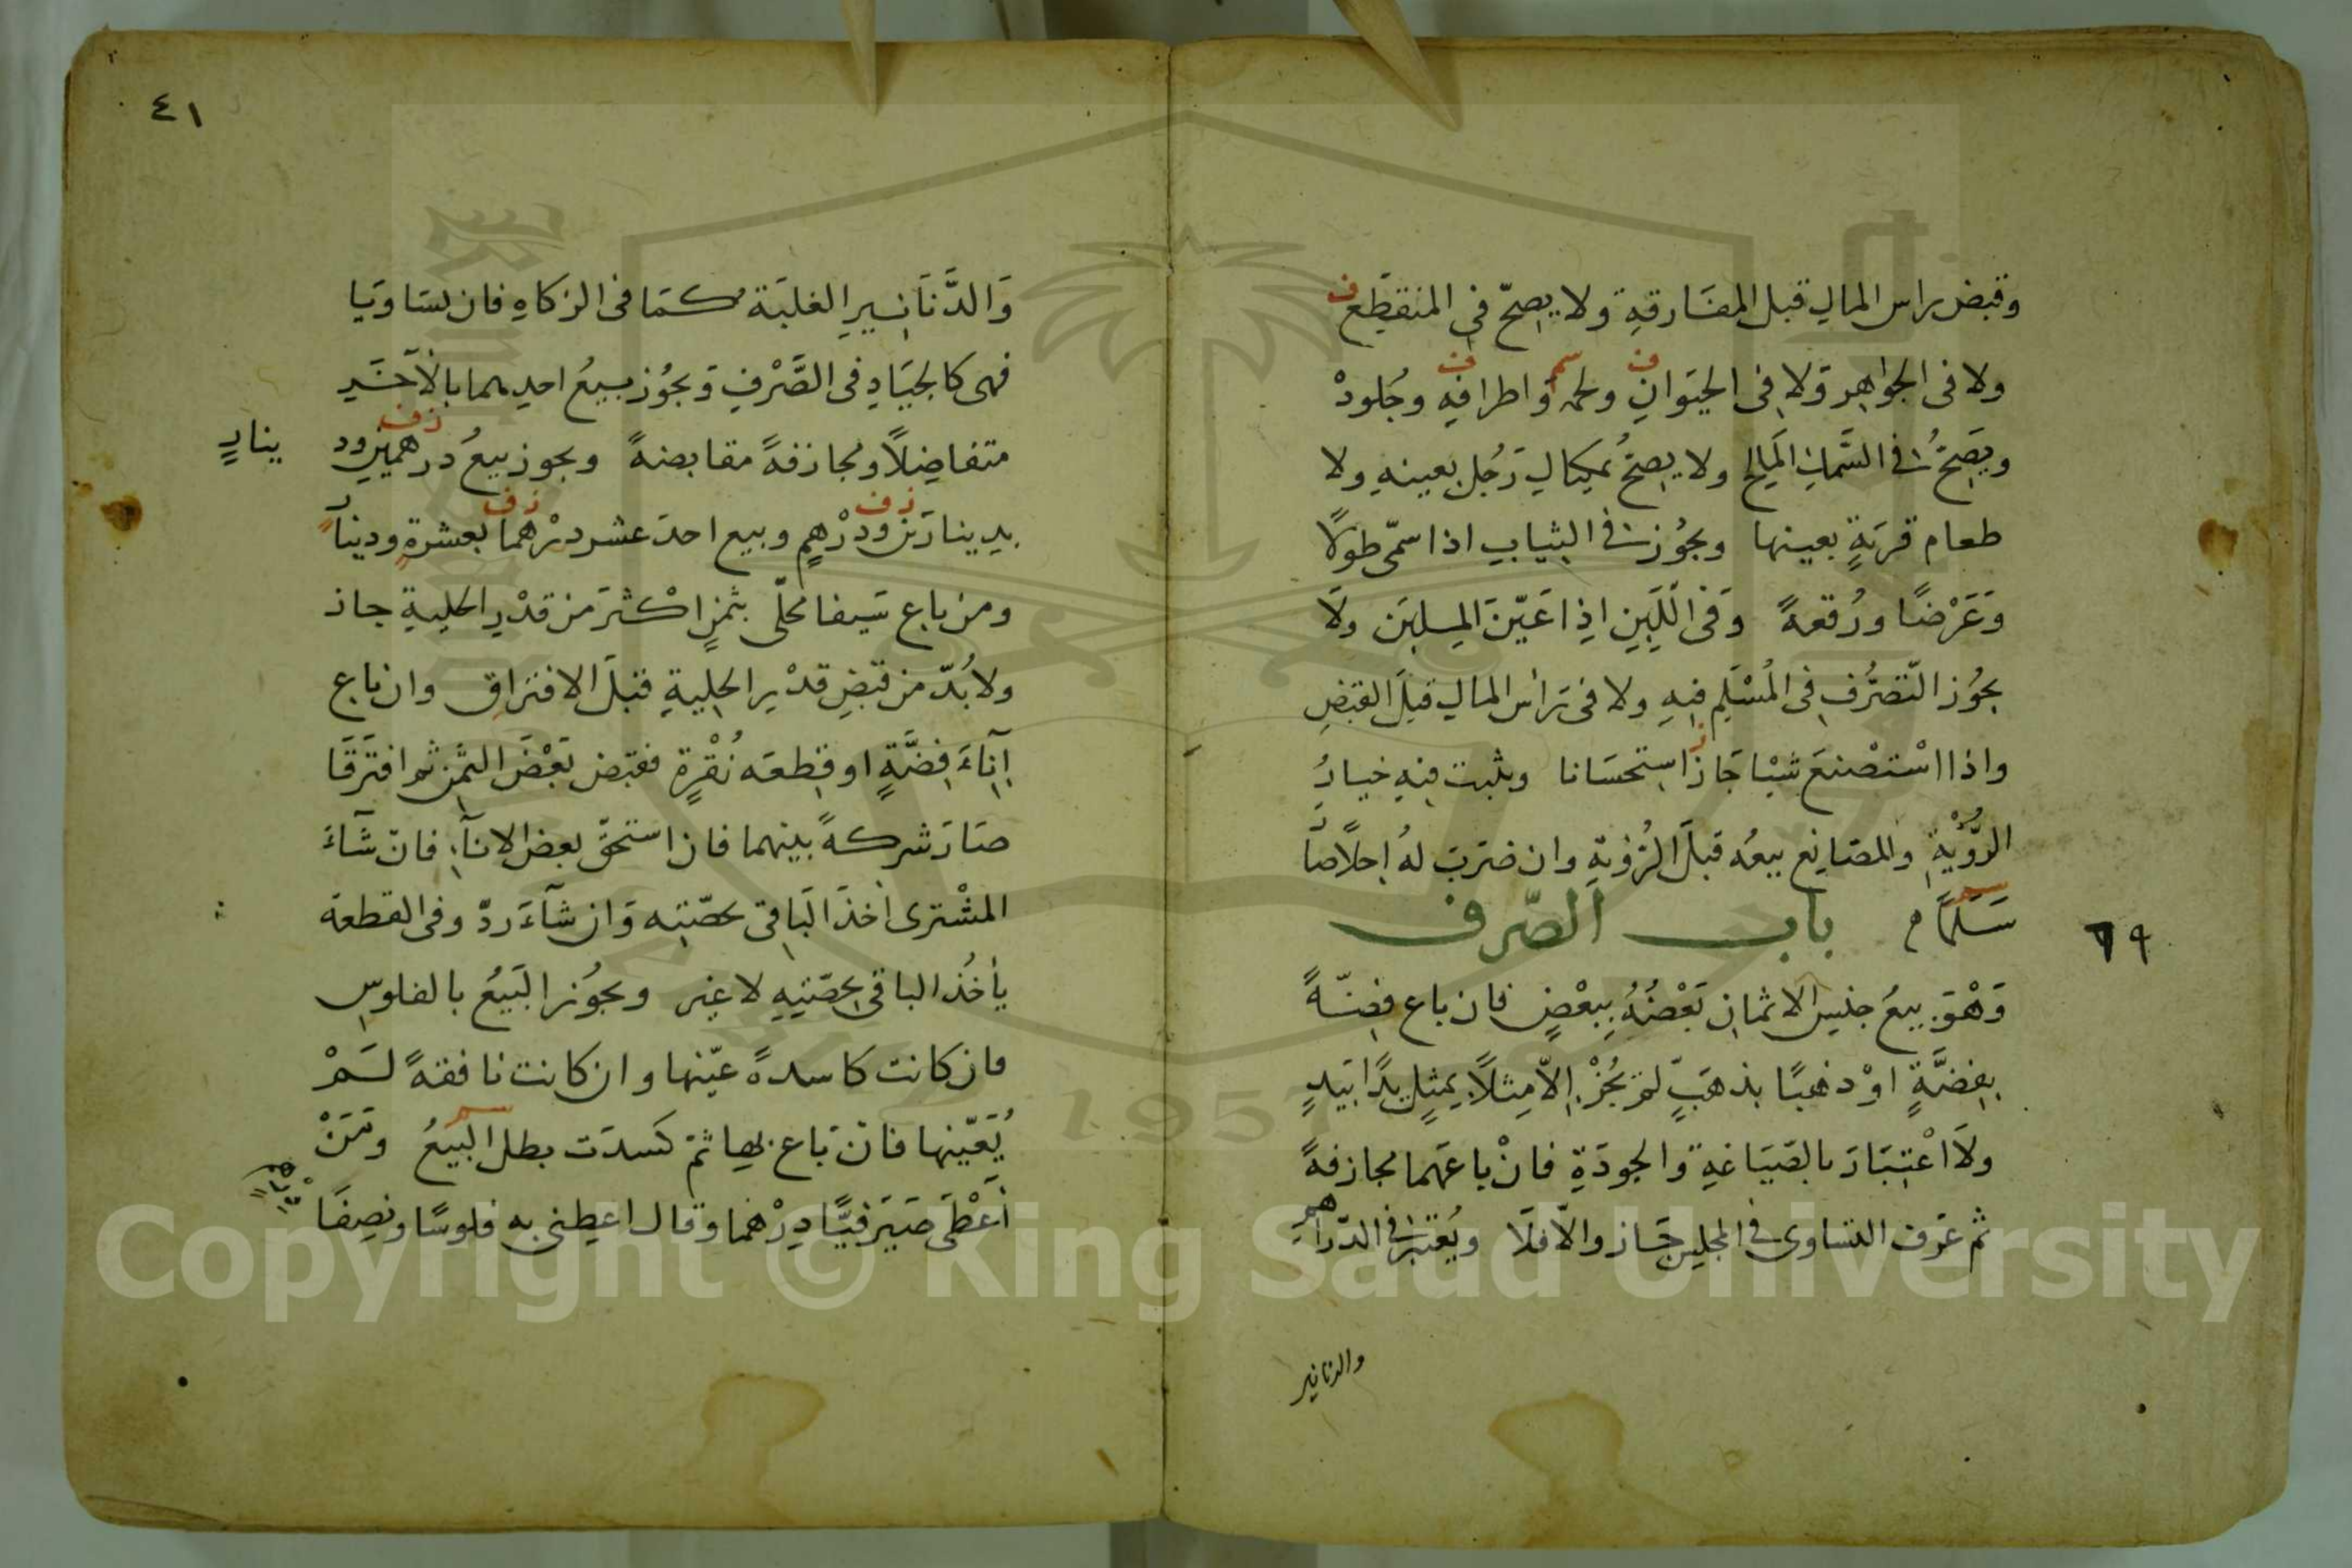 وقبض راس المال قبل المفَارقةِ ولا يصِحّ فى المنقطِع ف
ولا فى الجواهِر وَلا فى الحيَوانِ ولحمه وَاطرافِهِ وجُلودْ
ويَصِحُّ فى السَّمكِ المَالِح ولا يصِحُّ بمكيَالِ رَجُل بعينهِ ولا
طعام قريَةٍ بعينها ويجُوز فى الثيابِ اذا سمّى طولًا
وَعَرْضًا ورُقعةً وَفى اللَّبِنِ اذِا عَيّنَ المِلبَن ولَا
يجُوز التّصرُّف فى المُسْلَم فيهِ ولا فى رَأس المالِ قبلَ القبَضِ
واذا اسْتصْنعَ شيْا جَازَ استِحسَانا ويثبت فيهِ خيارُ
الرُّؤْيةِ وللصَانِع بيعُه قبلَ الرُّؤيةِ وان ضرَبَ لهُ اجلًا صَارَ
سَلَمًا م باب الصّرف
٦٩
وَهْوَ بيعُ جنِس الاثمانِ بَعْضُهُ بِبعْضٍ فان باع فضّةً
بفِضَّةٍ اوْ ذهبًا بذهَبٍ لم يجُزْ الاّ مِثلًا بمِثلٍ يدًا بَيدٍ
ولَا اعْتِبَارَ بالصَيَاغةِ والجودَةِ فانْ باعَهما مجازفةً
ثم عَرف التساوى فى المجلِس جَاز والاّ فلَا ويُعْتبرُ فى الدّراهمِ
والدنانير
٤١
وَالدَّنَانيرِ الغلبَة كمَا فى الزكاهِ فان تسَاوَيا
فهى كالجيَادِ فى الصَّرْفِ وَيجُوز بيعُ احديهما بالآخَرِ
متفاضِلًا ومجازفةً مقابضةً ويجوز بيعُ درهمينِ ود ينارٍ
زف
بدينارَين ودرْهمٍ وبيع احدَ عشر درْهما بعشرةٍ ودينارٍ
زف زف
ومن باع سَيفا محلّى بثمنٍ اكْثرَ من قدْرِ الحليةِ جاز
ولابُدّ من قبَضِ قدْرِ الحِليةِ قبلَ الافتراقِ وان باع
اِنَاءَ فِضَّةٍ او قِطعَه نُقْرةٍ فقبَض بَعْضَ الثمَنِ ثم افترَقَا
صَارَ شركةً بينهما فان استحقّ بعض الانآءِ فان شَآءَ
المشْترى اخذَ البَاقى بحصّتِه وَان شآءَ ردّ وفى القطعة
يأخُذ الباقى بحِصّتِهِ لا غير ويجُوز البَيعُ بالفلوسِ
فان كانت كاسدةً عيّنها وان كانت نافقةً لَمْ
يُعَيّنها فانْ بَاع بها ثمّ كسدَت بطل البَيعُ ومَنْ
أعْطَى صَيَرَفيًّا دِرْهما وقال اعطِنى به فلوسًا ونصِفًا